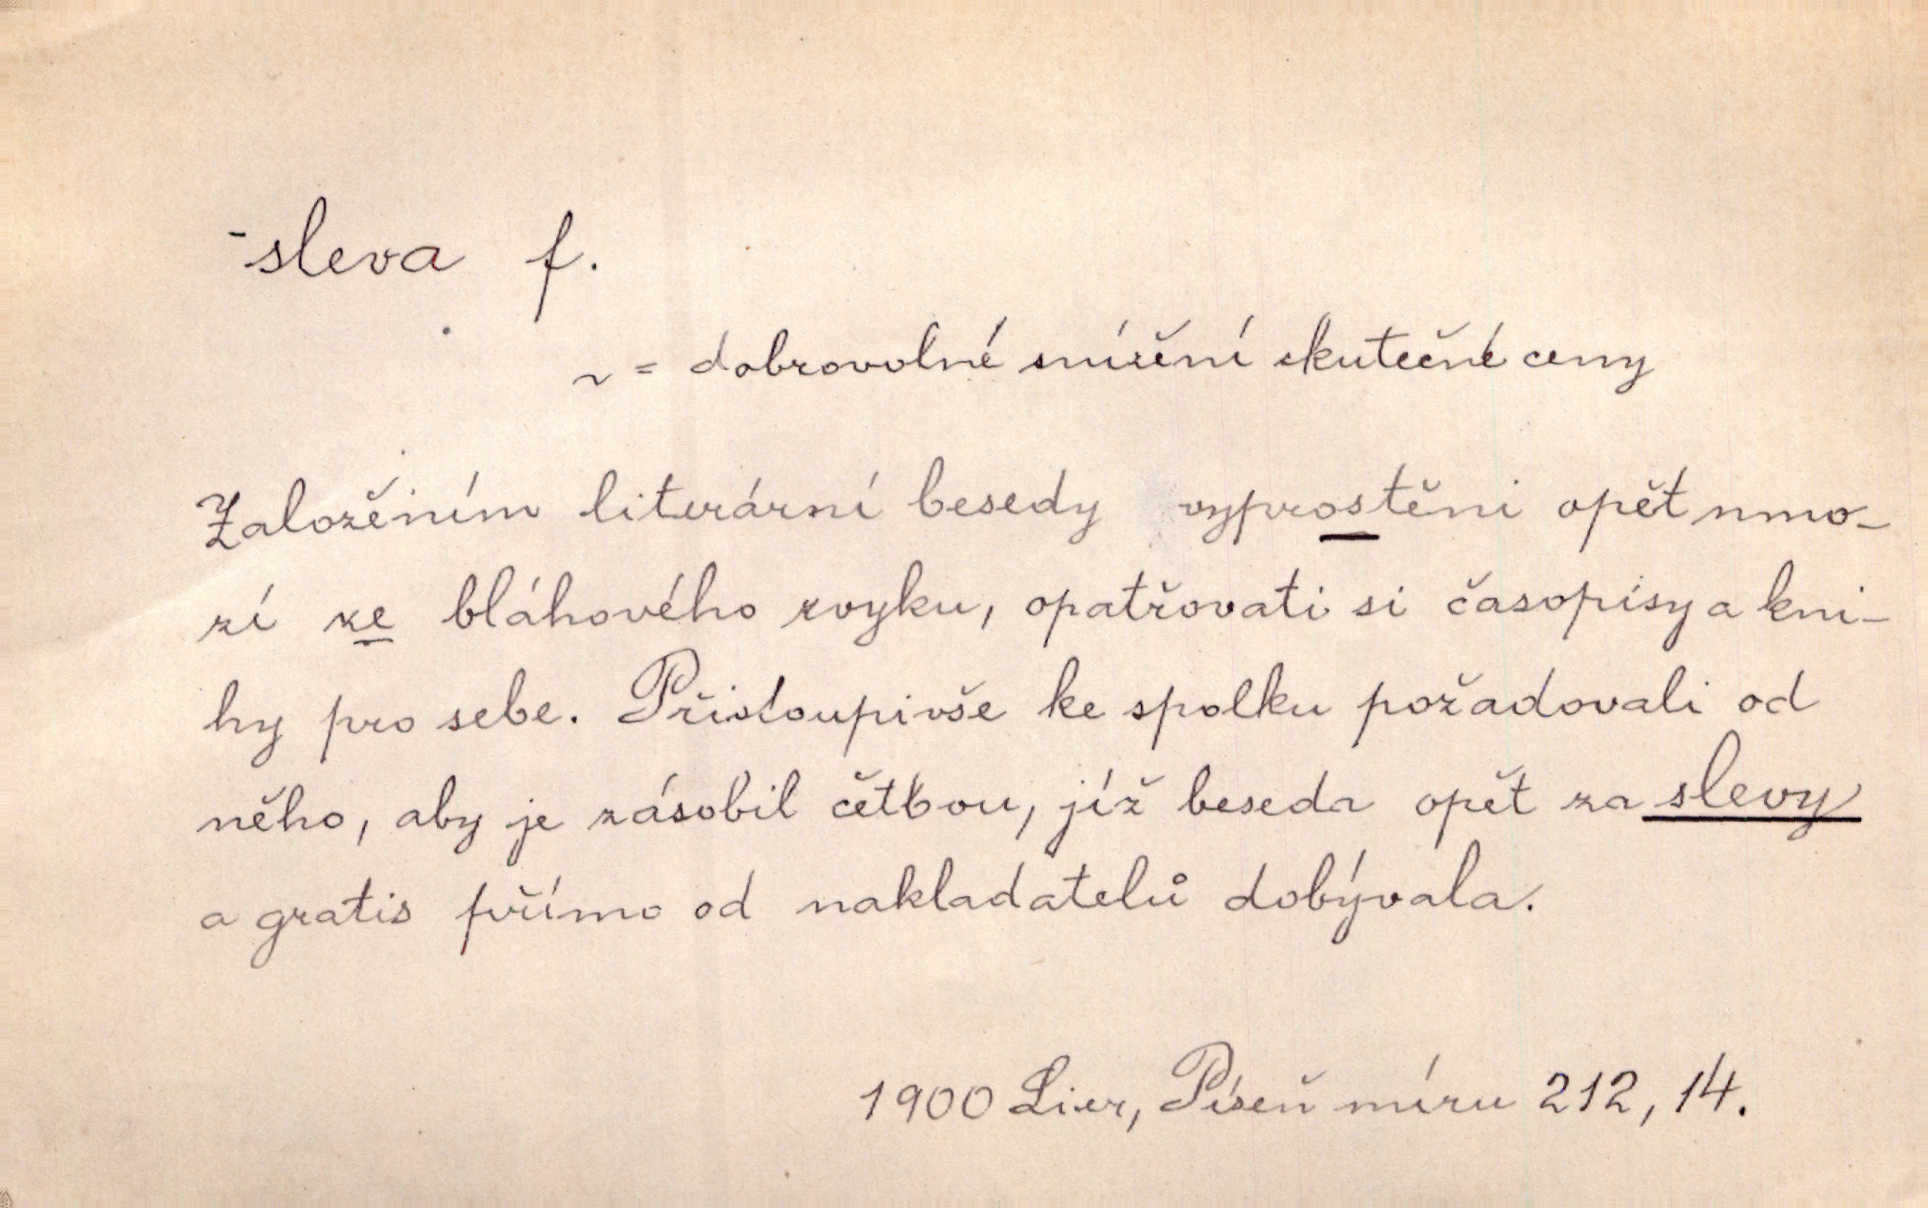 -sleva f.
~ = dobrovolné snížení skutečné ceny
Založením literární besedy vyprostěni opět mno-
zí ze bláhového zvyku, opatřovati si časopisy a kni-
hy pro sebe. Přistoupivše ke spolku požadovali od
něho, aby je zásobil četbou, jíž beseda opět za slevy
a gratis přímo od nakladatelů dobývala.
1900 Lier, Píseň míru 212, 14.